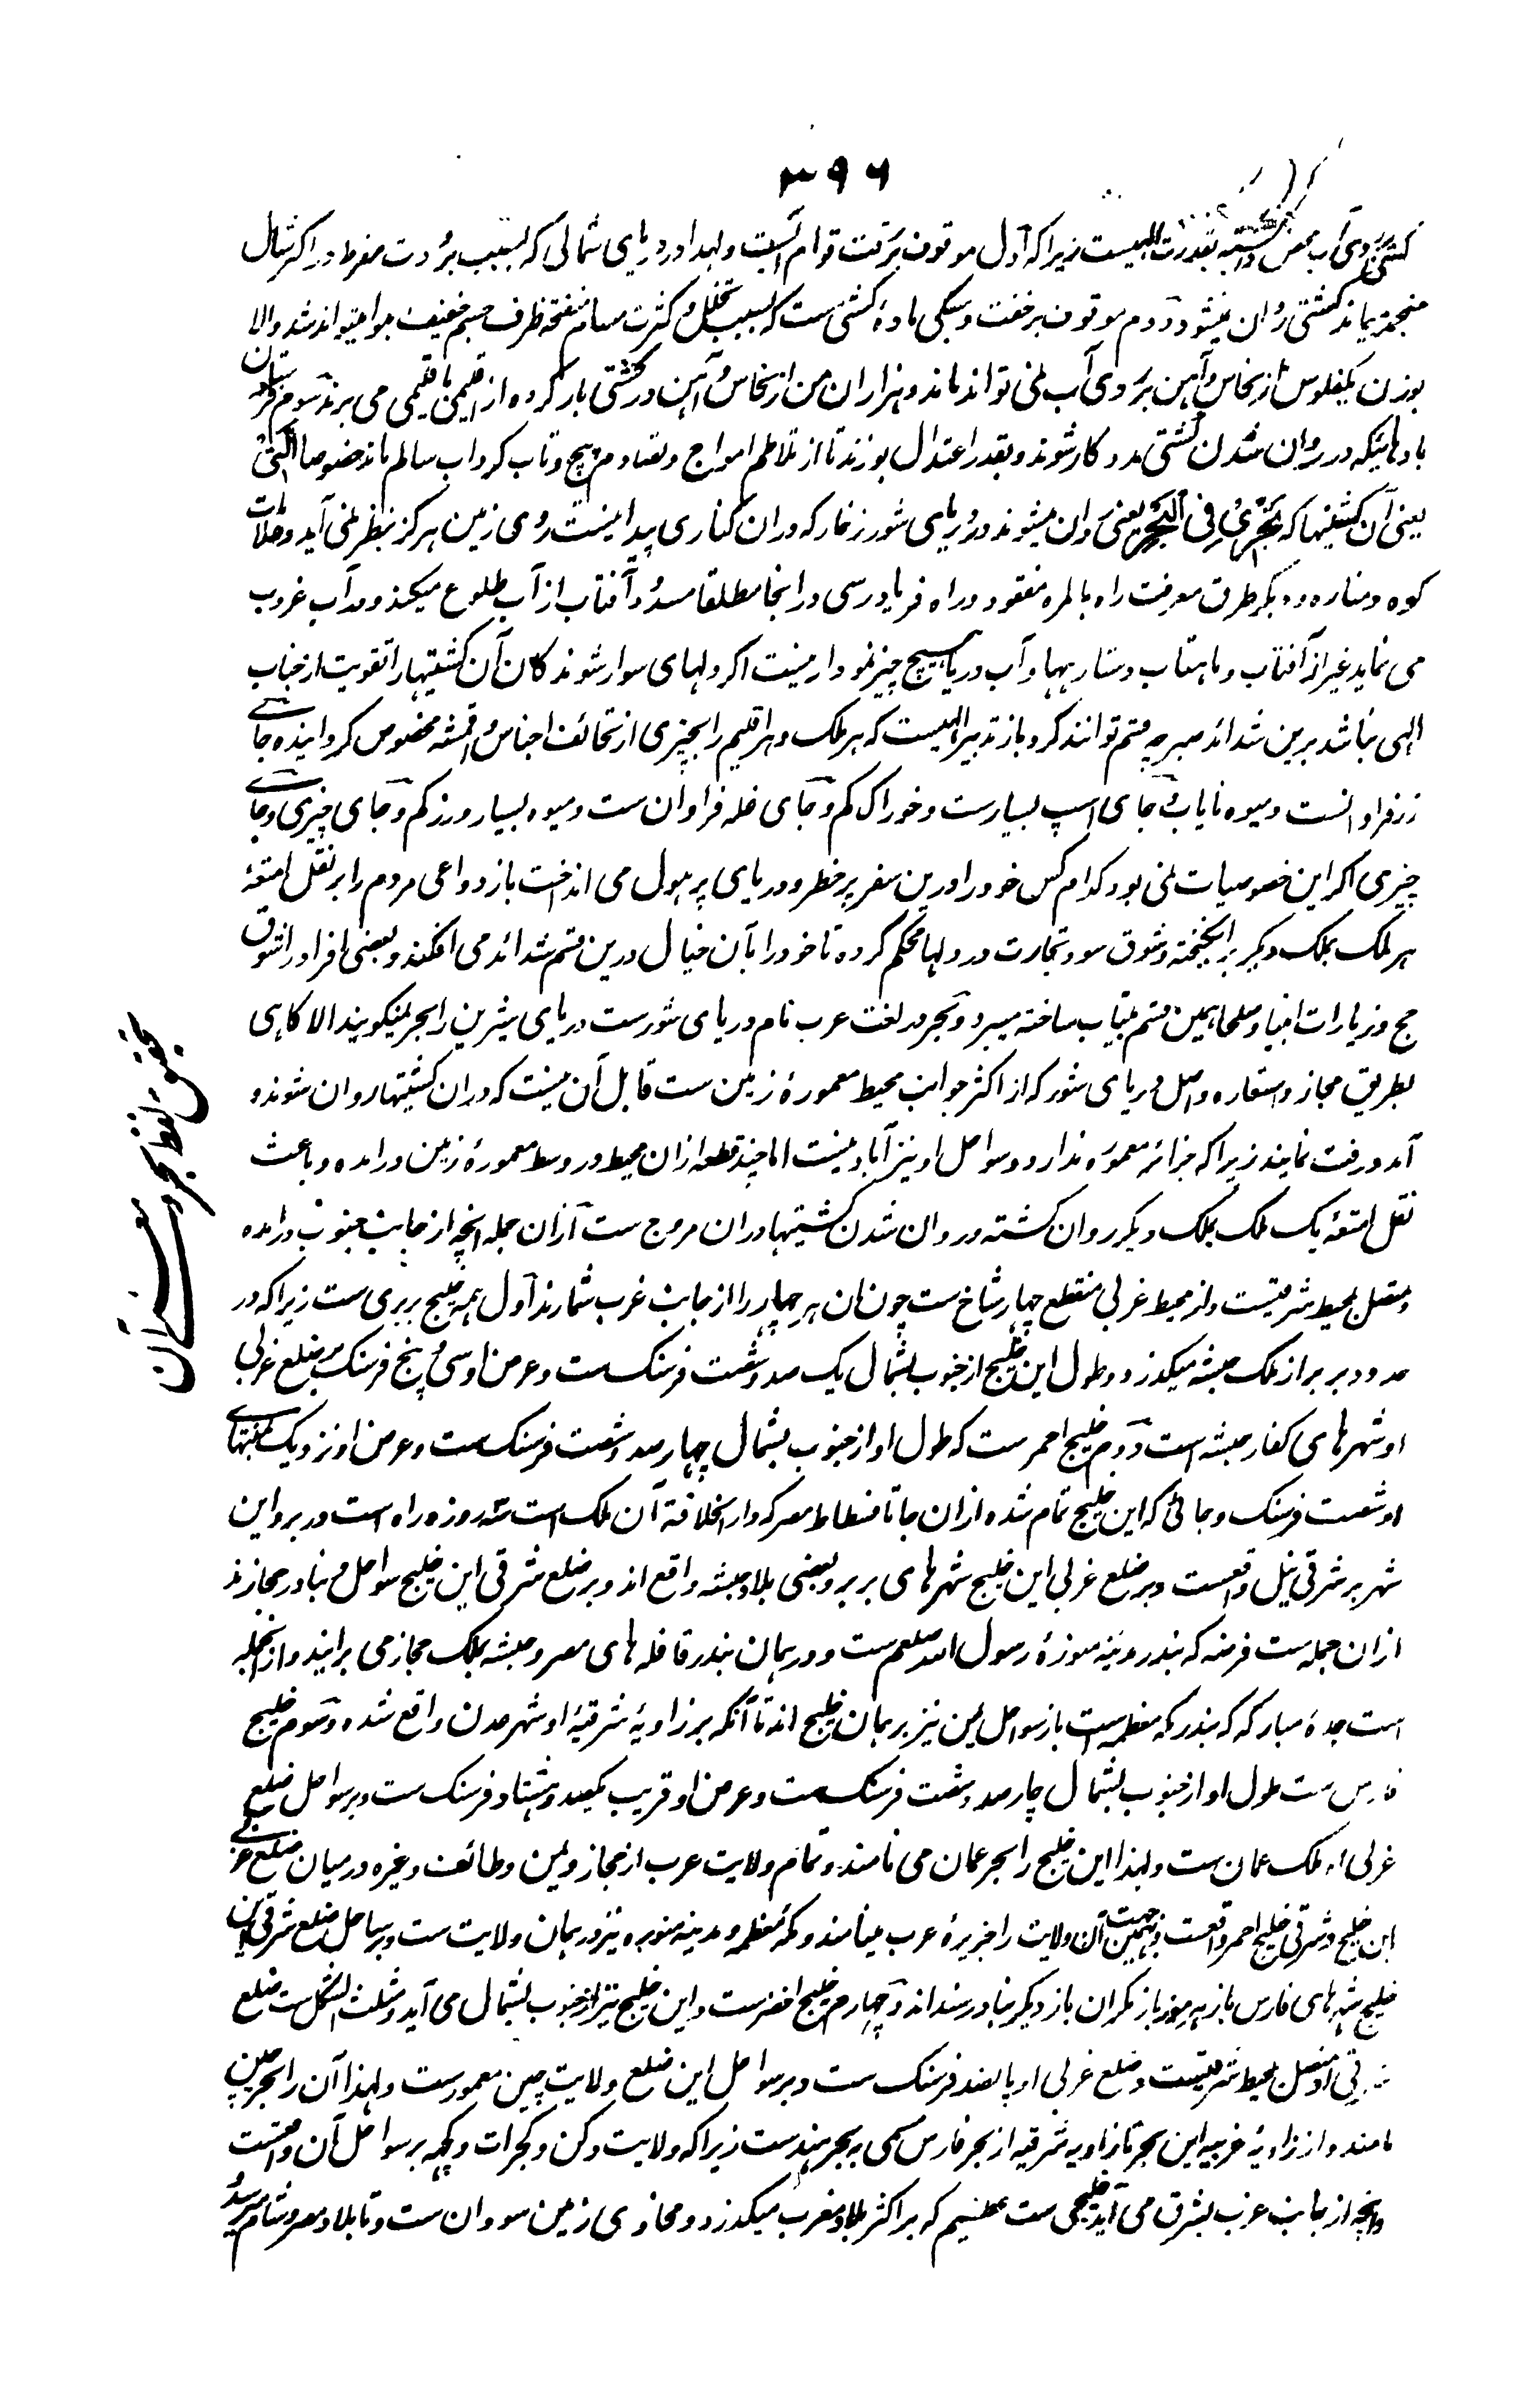 ۳۹۶
کشتی بر روی آب محض وابسته بقدرت الهیست زیرا که اول موقوف بر رقت قوام آبست ولهذا در دریای شمالی که بسبب برودت مفرط در اکثر سال
منجمد میماند کشتی روان نمیشود و دوم موقوف بر خفت و سبکی مادهٔ کشتی ست که بسبب تخلخل و کثرت مسام منفتحه ظرف جسم خفیف هوا میتواند شد والا
بوزن یکفلوس از نحاس و آهن بر روی آب نمی تواند ماند و هزاران من از نحاس و آهن در کشتی بار کرده از اقلیمی باقلیمی می برند و سوم فرستادن
بادهائیکه در روان شدن کشتی مددگار شوند و بقدر اعتدال بوزند تا از تلاطم امواج و تصادم پیچ و تاب گرداب سالم ماند خصوصا الَّتِی
یعنی آن کشتیها که تَجْرِی فِی الْبَحْرِ یعنی روان میشوند در دریای شور زخار که دران کناری پیدا نیست روی زمین هرگز بنظر نمی آید و علامات
کوه و مناره و دیگر طرق معرفت راه بالمره مفقود و راه فریادرسی در انجا مطلقا مسدود آفتاب از آب طلوع میکند و در آب غروب
می نماید غیر از آفتاب و ماهتاب و ستارها و آب دریا هیچ چیز نمودار نیست اگر دلهای سوار شوندگان آن کشتیها را تقویت از جناب
الهی نباشد برین شداند صبر چه قسم توانند کرد و باز تدبیر الهیست که هر ملک و هر اقلیم را بچیزی از تحائف اجناس و اقمشه مخصوص گردانیده جائے
زر فراوانست و میوه نایاب و جای اسپ بسیارست و خوراک کم و جای غله فراوان ست و میوه بسیار و زر کم و جای چیزی و جائے
چیزی اگر این خصوصیات نمی بود کدام کس خود را درین سفر پر خطر و دریای پر هول می انداخت باز دواعی مردم را بر نقل امتعهٔ
هر ملک بملک دیگر برانگیخته و شوق سود تجارت در دلها محکم کرده تا خود را بآن خیال درین قسم شدائد می افکنند و بعضی افراد را شوق
حج و زیارات انبیا و صلحا بهمین قسم بیتاب ساخته میبرد و بحر در لغت عرب نام دریای شورست دریای شیرین را بحر نمیگویند الا گاهی
بطریق مجاز و استعاره و اصل دریای شور که از اکثر جوانب محیط معمورهٔ زمین ست قابل آن نیست که دران کشتیها روان شوند و
آمد و رفت نمایند زیرا که جزائر معموره ندارد و سواحل او نیز آباد نیست اما چند قطعه ازان محیط در وسط معمورهٔ زمین در آمده و باعث
نقل امتعهٔ یک ملک بملک دیگر روان گشته و روان شدن کشتیها دران مروج ست ازان جمله انچه از جانب جنوب در آمده
و متصل بمحیط شرقیست و از محیط غربی منقطع چهار شاخ ست چون آن هر چهار را از جانب غرب شمارند اول همه خلیج بربری ست زیرا که در
حدود بربر از ملک حبشه میگذرد و طول این خلیج از جنوب بشمال یک صد و شصت فرسنگ ست و عرض او سی و پنج فرسنگ بر ضلع غربی
او شهرهای کفار حبشه است دوم خلیج احمر ست که طول او از جنوب بشمال چهارصد و شصت فرسنگ ست و عرض او نزدیک بمنتهای
او شصت فرسنگ و جائی که این خلیج تمام شده ازان جا تا فسطاط مصر که دار الخلافة آن ملک است سه روزه راه است در بر و این
شهر بر شرقی نیل واقعست و بر ضلع غربی این خلیج شهرهای بربر و بعضی بلاد حبشه واقع اند و بر ضلع شرقی این خلیج سواحل و بنادر حجازند
ازان جمله ست فرضه که بندر مدینه منورهٔ رسول الله صلعم ست و در همان بندر قافله های مصر و حبشه بملک حجاز می برایند و از انجمله
است جدهٔ مبارکه که بندر مکه معظمه است باز سواحل یمن نیز بر همان خلیج اند تا آنکه بر زاویهٔ شرقیهٔ او شهر عدن واقع شده و سوم خلیج
فارس ست طول او از جنوب بشمال چارصد و شصت فرسنگ ست و عرض او قریب یکصد و هشتاد فرسنگ ست و بر سواحل ضلع
غربی او ملک عمان ست و لهذا این خلیج را بحر عمان می نامند و تمام ولایت عرب از حجاز و یمن و طائف و غیره در میان ضلع غربے
این خلیج و شرقی خلیج احمر واقعست و بهمین جهت آن ولایت را جزیرهٔ عرب مینامند و مکهٔ معظمه و مدینه منوره نیز در همان ولایت ست و بر ساحل ضلع شرقی این
خلیج شهرهای فارس باز هرموز باز مکران باز دیگر بنادر سند اند و چهارم خلیج اخضرست و این خلیج نیز از جنوب بشمال می آید و مثلث الشکل ست ضلع
شرقی او متصل بمحیط شرقیست و ضلع غربی او پانصد فرسنگ ست و بر سواحل این ضلع ولایت چین معمورست و لهذا آن را بحر چین
نامند و از زاویهٔ غربیه این بحر تا زاویه شرقیه از بحر فارس مسمی به بحر هندست زیرا که ولایت دکن و گجرات و کچهه بر سواحل آن واقعست
و انچه از جانب غرب بشرق می آید خلیجی ست عظیم که بر اکثر بلاد مغرب میگذرد و محاذی زمین سودان ست و تا بلاد مصر و شام میرسد
تحقیق لفظ بحر و معنے آن